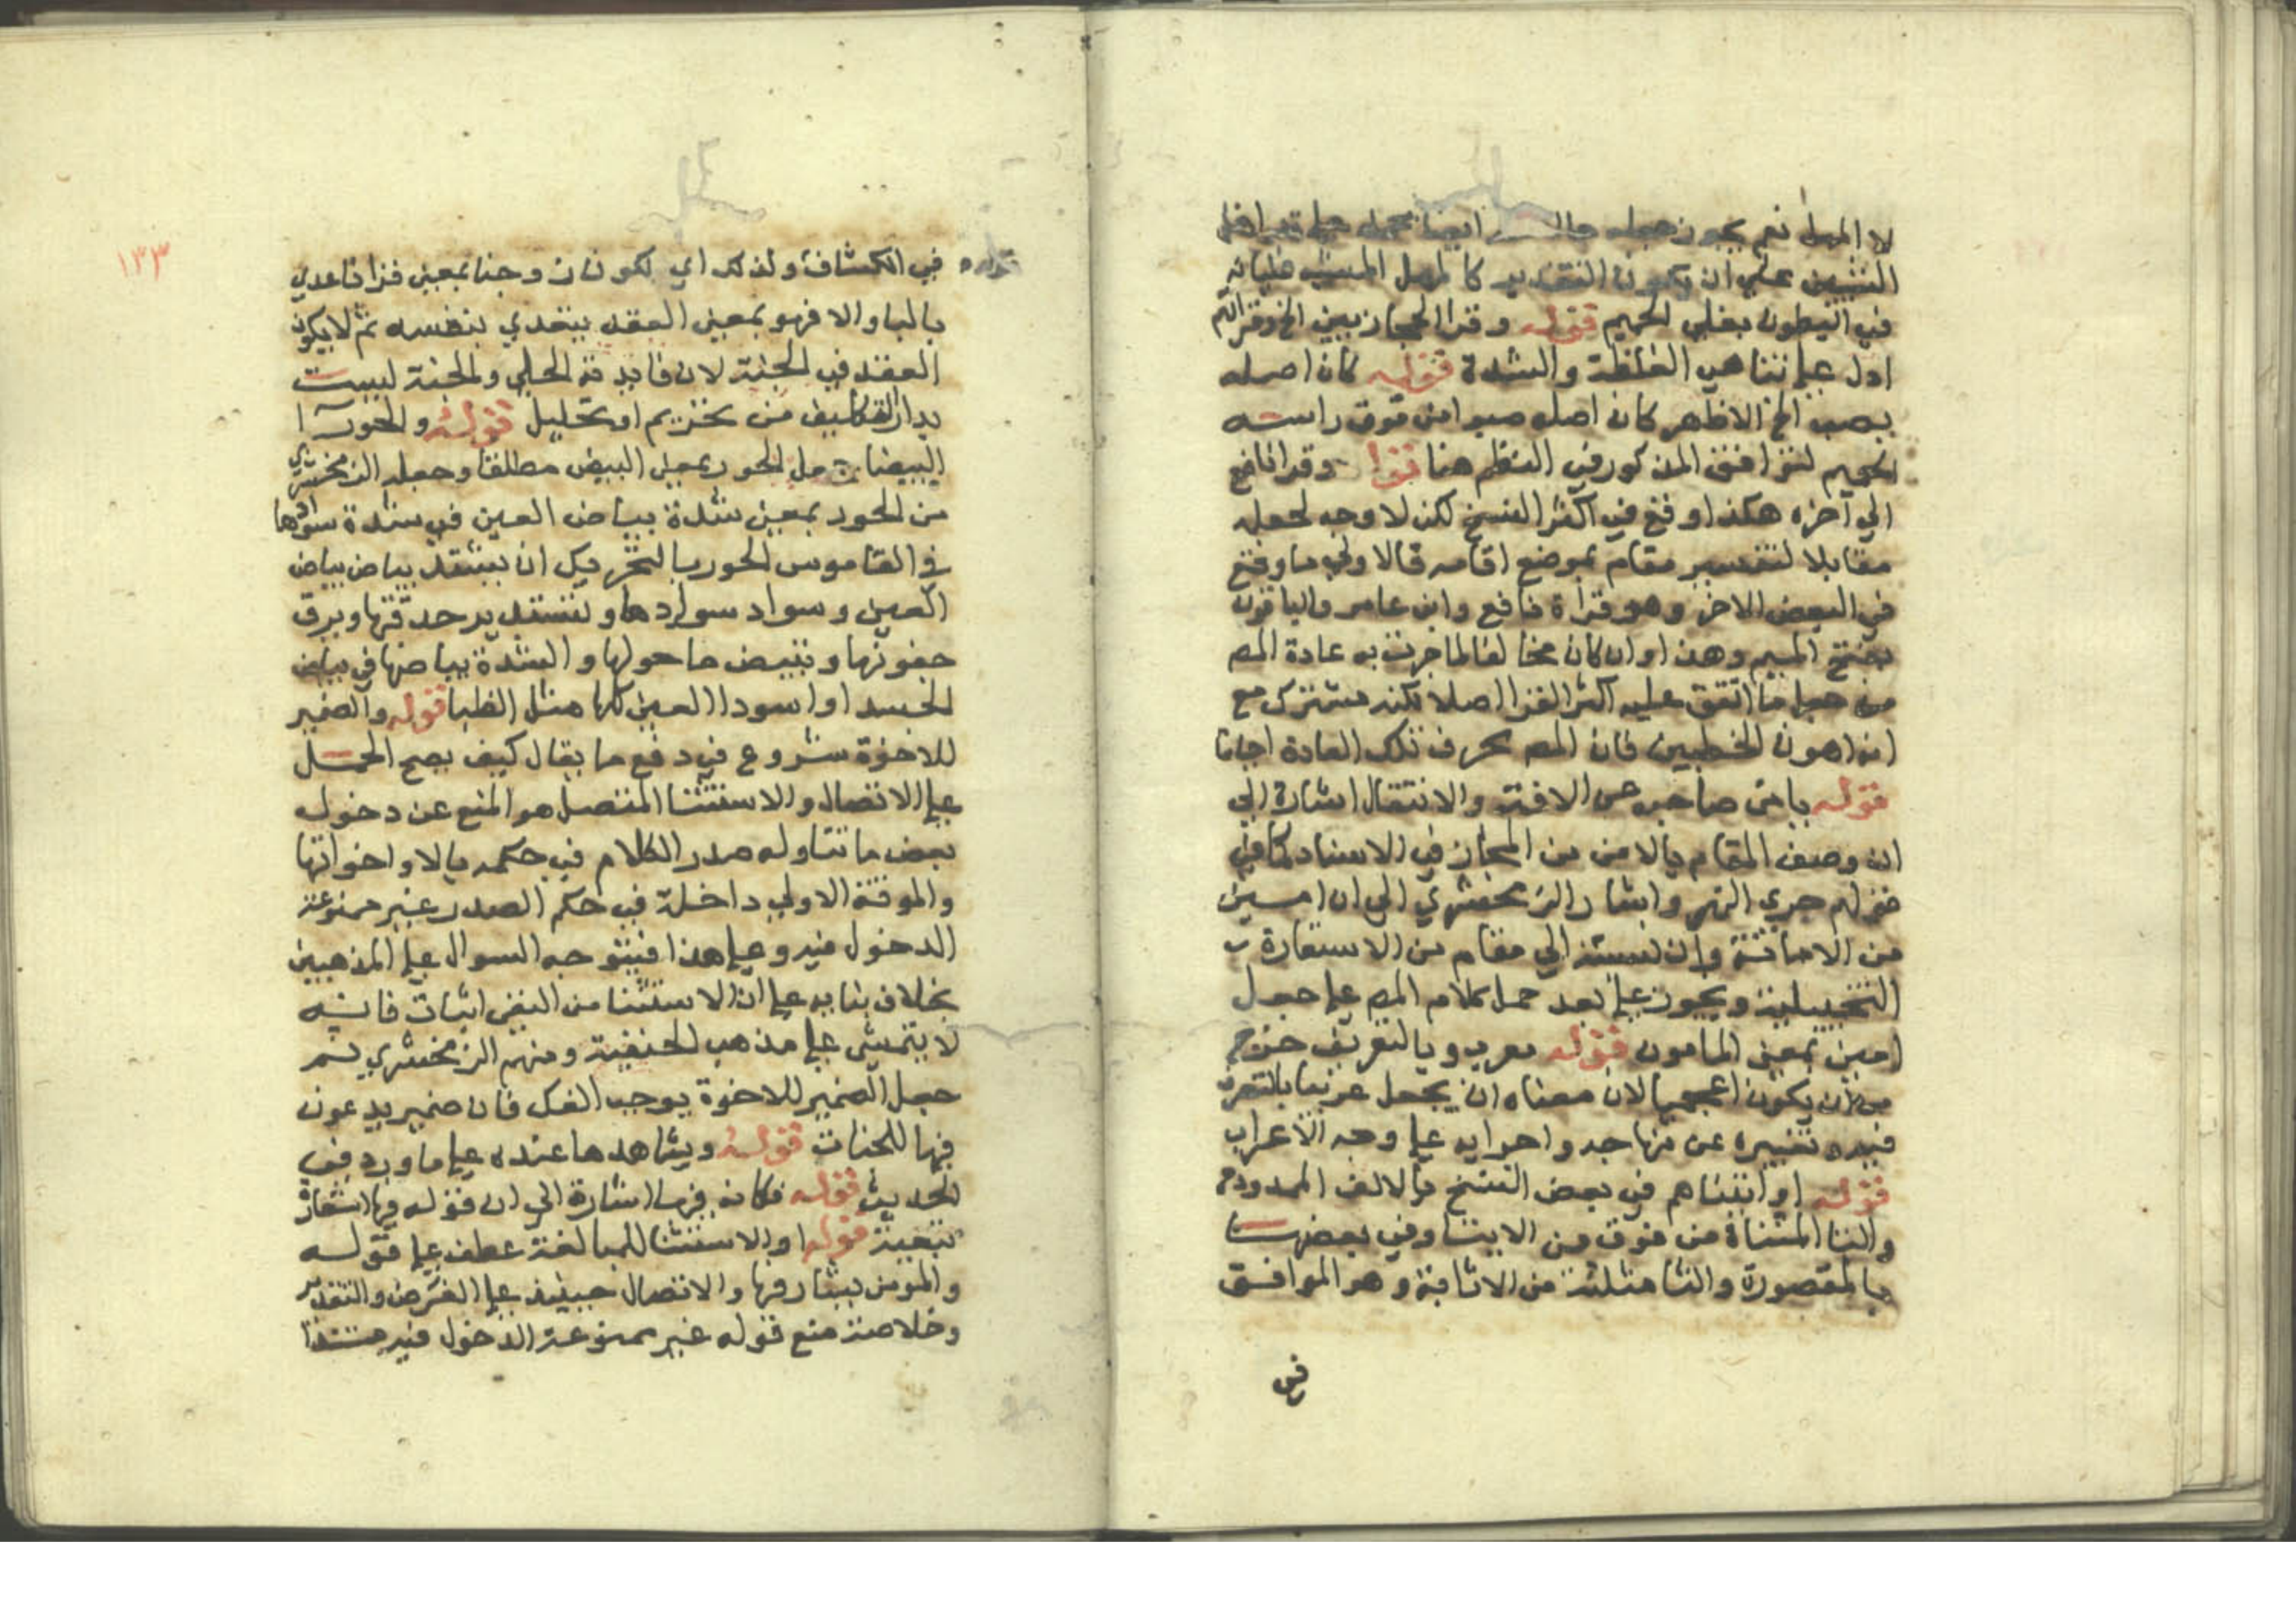 لا المهل نعم يجوز جعله حالا ايضا
التشبيه على ان يكون التقدير كالمهل المشبه غليانه
في البطون بغلي الحميم قوله وقرا الحجازيين الخ وقراتهم
ادل على تناهي الغلظة والشدة قوله كان اصله
يصب الخ الاظهر كان اصله صبوا من فوق راسه
الحميم لتوافق المذكور في النظم هنا قوله وقرا نافع
الي آخره هكذا وقع في اكثر النسخ لكن لا وجه لجعله
مقابلا لتفسير مقام بموضع اقامه فالاولي ما وقع
في البعض الاخر وهو قراة نافع وابن عامر والباقون
بفتح الميم وهذا وان كان مخالفا لما جرت به عادة المص
من جعل ما اتفق عليه اكثر القرا اصلا لكنه مشترك مع
انه اهون الخطبين فان المص يحرف تلك العادة احيانا
قوله يامن صاحبه عن الافة والانتقال اشارة الي
ان وصف المقام بالامن من المجاز في الاسناد كما في
قولهم جري النهر واشار الزمخشري الي ان امين
من الامانة وان نسبته الي مقام من الاستعارة
التخييلية ويجوز على بعد حمل كلام المص على جعل
امين بمعنى المامون قوله معرب وبالتعريف خرج
من ان يكون اعجميا لان معناه ان يجعل عربيا بالتصرف
فيه وتغييره عن منهاجه واجرايه على وجه الاعراب
قوله او اتيناهم في بعض النسخ بالالف الممدودة
والتا المثناة من فوق من الايتا وفي بعضها
بالمقصورة والثا مثلثة من الاثابة وهو الموافق
في
١٣٣
قوله
في الكشاف ولذلك اي لكون زوجنا بمعنى قرنا عدي
بالباء والا فهو بمعنى العقد يتعدي بنفسه ثم لا يكون
العقد في الجنة لان فايدته الحل والجنة ليست
بدار التكليف من تحريم او تحليل قوله والحورا
البيضا جعل الحور بمعنى البيض مطلقا وجعله الزمخشري
من الحور بمعنى شدة بياض العين في شدة سوادها
في القاموس الحور بالتحريك ان يشتد بياض بياض
العين وسواد سوادها وتستدير حدقتها وترق
جفونها ويبيض ما حولها او الشدة بياضها في بياض
الجسد او اسوداد العين كلها مثل الظبا قوله والضمير
للاخرة شروع في دفع ما يقال كيف يصح الحمل
على الاتصال والاستثنا المتصل هو المنع عن دخول
بعض ما تناوله صدر الكلام في حكمه بالا واخواتها
والموتة الاولي داخلة في حكم الصدر غير ممنوعة
الدخول فيه وعلى هذا فيتوجه السوال على المذهبين
بخلاف بنايه على ان الاستثنا من النفي اثبات فانه
لا يتمشى على مذهب الحنفية ومنهم الزمخشري ثم
جعل الضمير للاخرة يوجب الفك فان ضمير يدعون
فيها للجنات قوله ويشاهدها عنده على ما ورد في
الحديث قوله فكانه فيها اشارة الي ان قوله فيها استعارة
تبعية قوله او الاستثنا للمبالغة عطف على قوله
والمومن يشارفها والاتصال حينيذ على الفرض والتقدير
وخلاصته منع قوله غير ممنوعة الدخول فيه